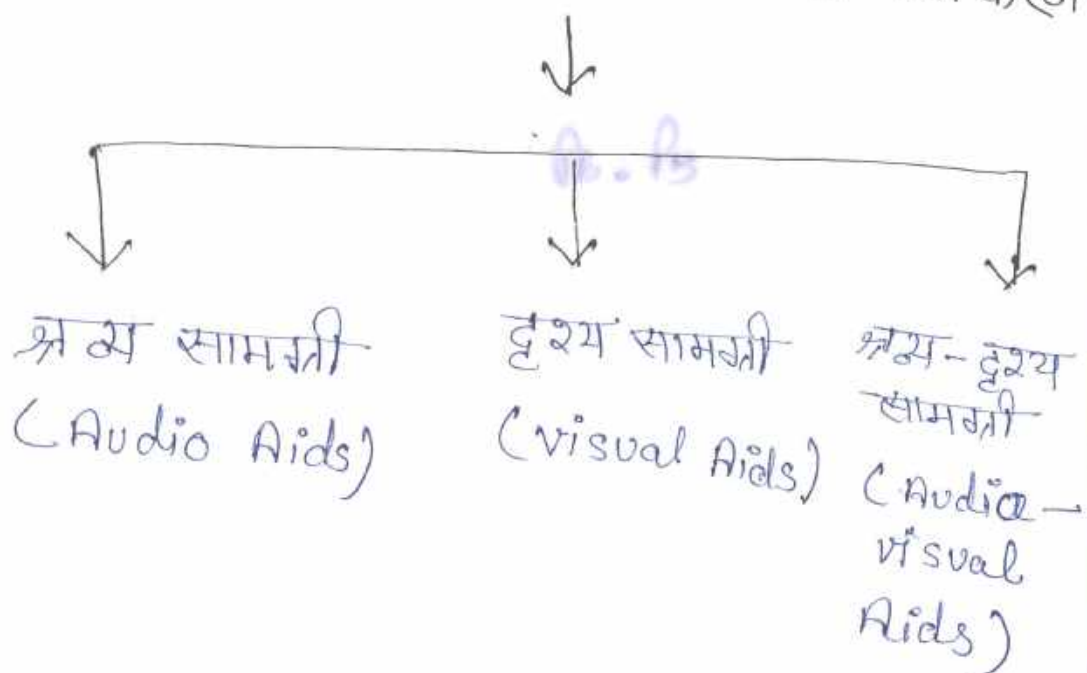 श्रव्य सामग्री
(Audio Aids)
दृश्य सामग्री
(Visual Aids)
श्रव्य-दृश्य
सामग्री
(Audio-
visual
Aids)